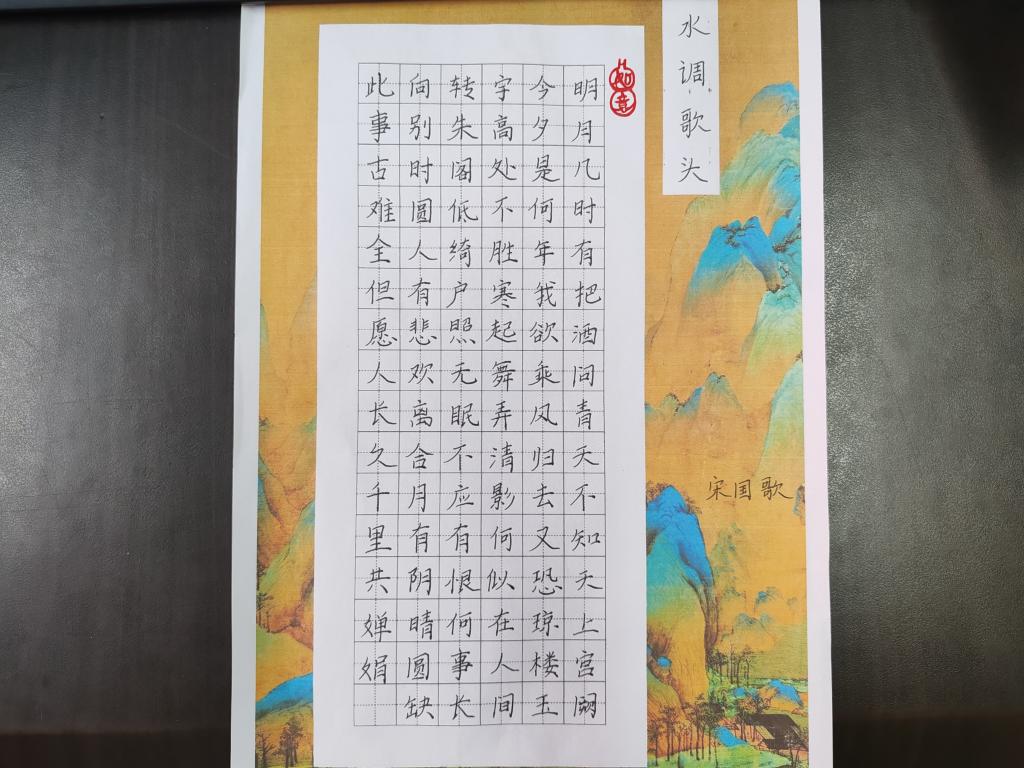 水调歌头
如意
明月几时有把酒问青天不知天上宫阙
今夕是何年我欲乘风归去又恐琼楼玉
宇高处不胜寒起舞弄清影何似在人间
转朱阁低绮户照无眠不应有恨何事长
向别时圆人有悲欢离合月有阴晴圆缺
此事古难全但愿人长久千里共婵娟
宋国歌